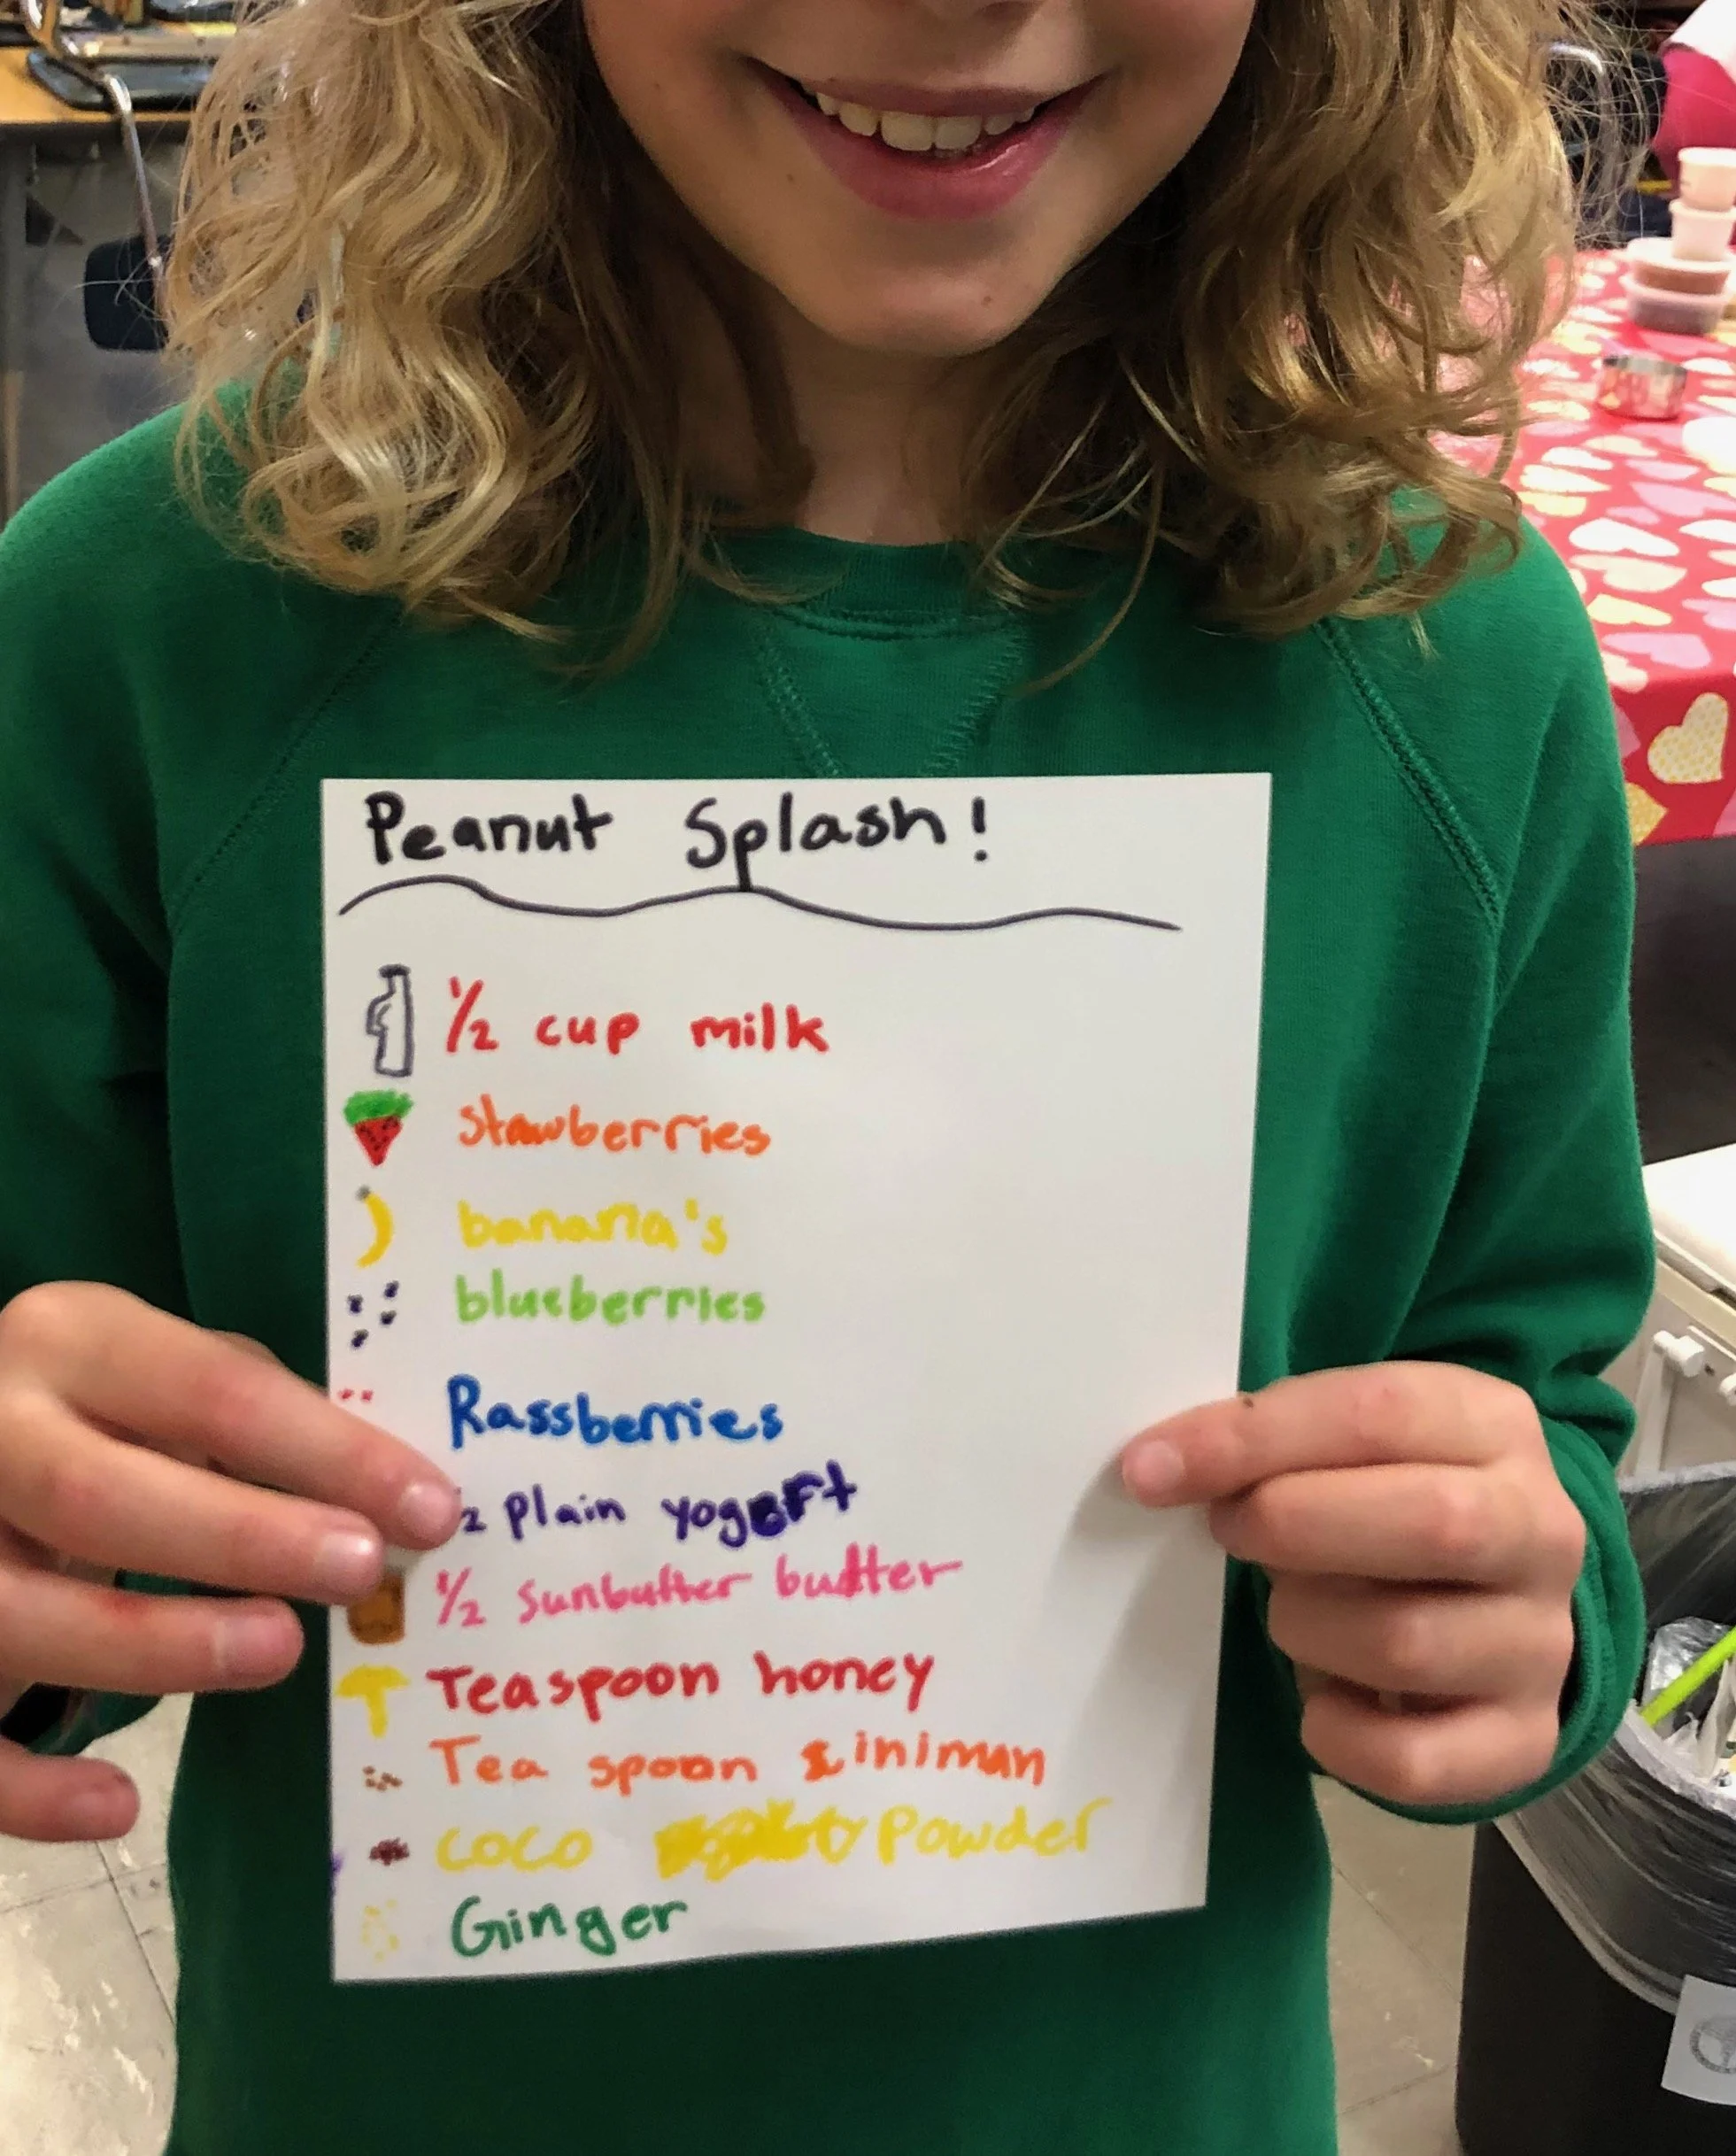 Peanut Splash!
1/2 cup milk
stawberries
banana's
blueberries
Rassberries
2 plain
1/2 sunbutter budter
Teaspoon honey
Tea spoon siniman
coco powder
Ginger